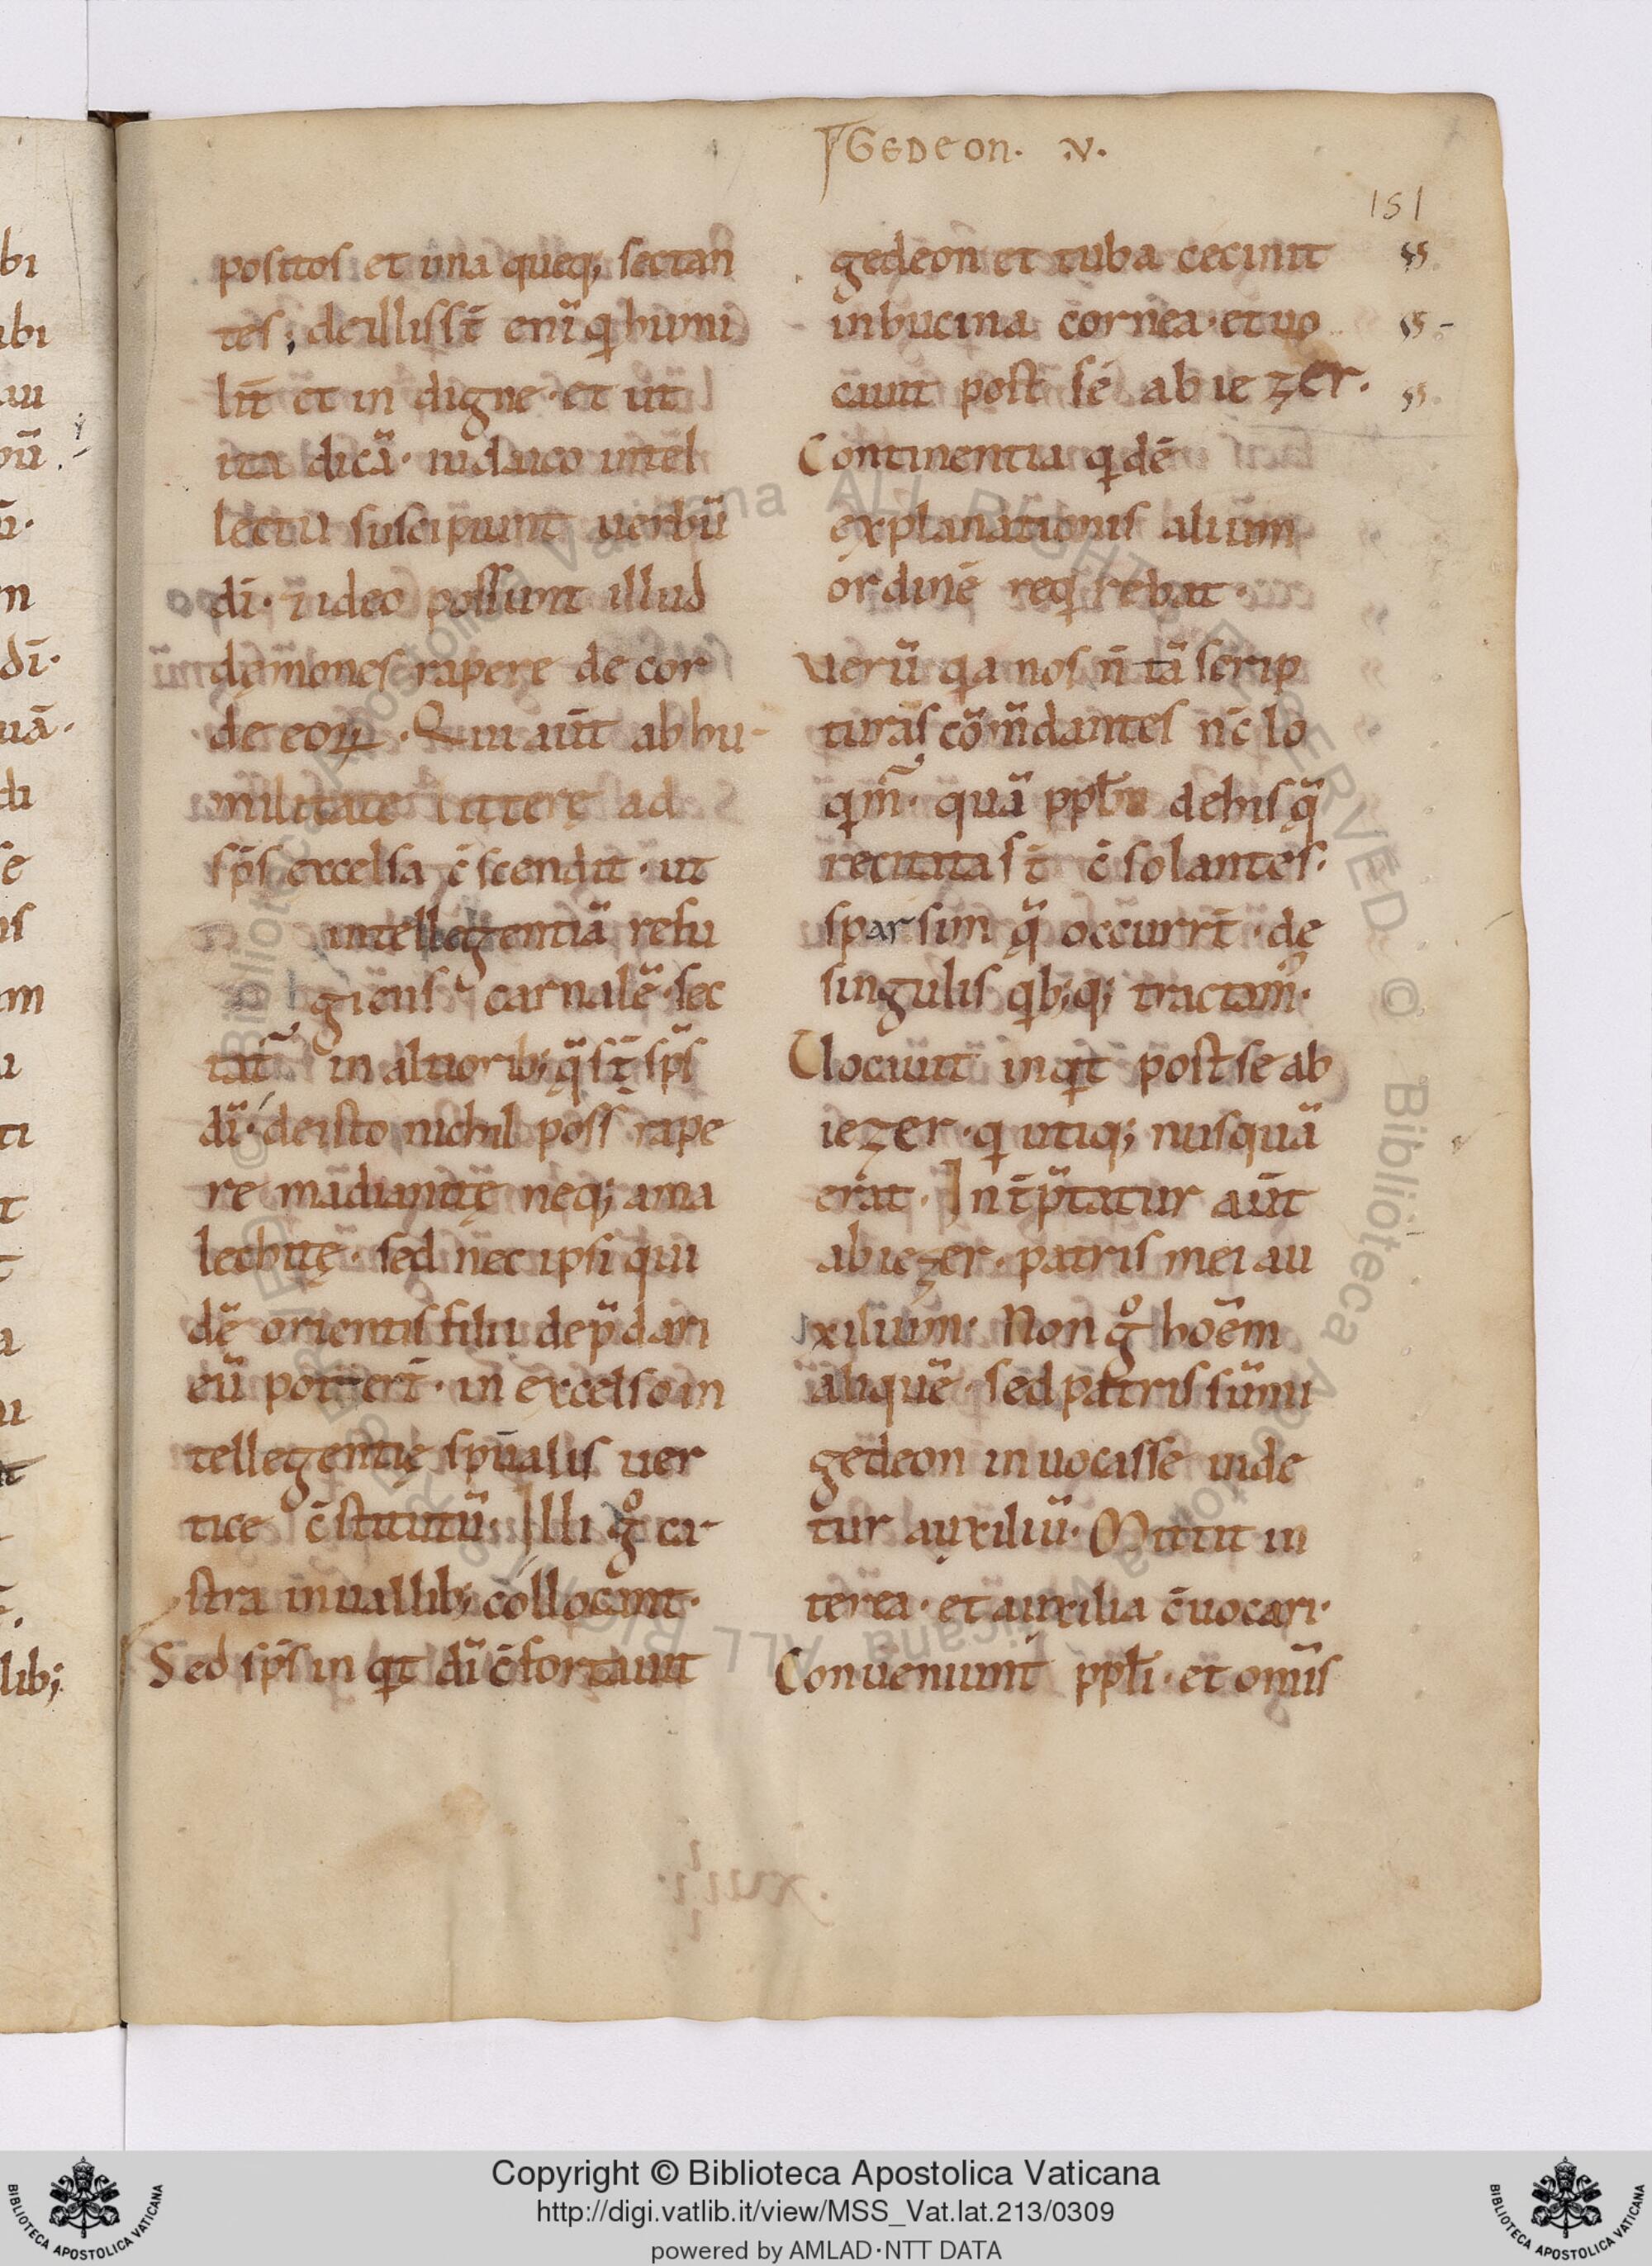 GEDEON. .V.
151
positos et ima queq; sectan
tes; de illis st̄ eni̅ q̣ humi
lit̄ et in digne · et ut
ita dicā · iudaico intel
lectu suscipiunt uerbū
di̅ · ⁊ ideo possunt illud
demones rapere de cor
de eoꝝ · Qui aut̄ ab hu-
militate litterę ad
sp̄s excelsa c̄scendit · ut
intellegentiā refu
giens carnalē · sec
tat̄ in altiorib; q̄ st̄ sp̄s
di̅ · de isto nichil poss̄ rape
re madianitę neq; ama
lechitę · sed nec ipsi qui
dē orientis filii dep̄dari
eū poterit̄ · in excelso in
tellegentię sp̄ualis uer
tice c̄stitutū · Illi g̊ ca-
stra in uallib; collocant ·
Sed sp̄s in qt̄ di̅ c̄fortauit
gedeon et tuba cecinit
in bucina cornea · et uo
cauit post se abiezer ·
Continentia qdē
explanationis alium
ordinē reqrebat ·
Verū qa nos n̄ tā scrip
turas com̄dantes nc̄ lo
qm̄ · quā pplm̄ de his q̄
recitata st̄ c̄solantes ·
sparsim q̄ occurrt̄ · de
singulis qb;q; tractam̄ ·
Uocauit inqt̄ post se ab
iezer · q utiq; nusquā
erat · Int̄p̄tatur aut̄
abiezer · patris mei au
xilium · Non g̊ hoēm
aliquē · sed patris summi
gedeon inuocasse uide
tur auxiliū · Mittit in
terea · et auxilia c̄uocari ·
Conueniunt ppl̄i · et om̄is
Copyright © Biblioteca Apostolica Vaticana
http://digi.vatlib.it/view/MSS_Vat.lat.213/0309
powered by AMLAD·NTT DATA